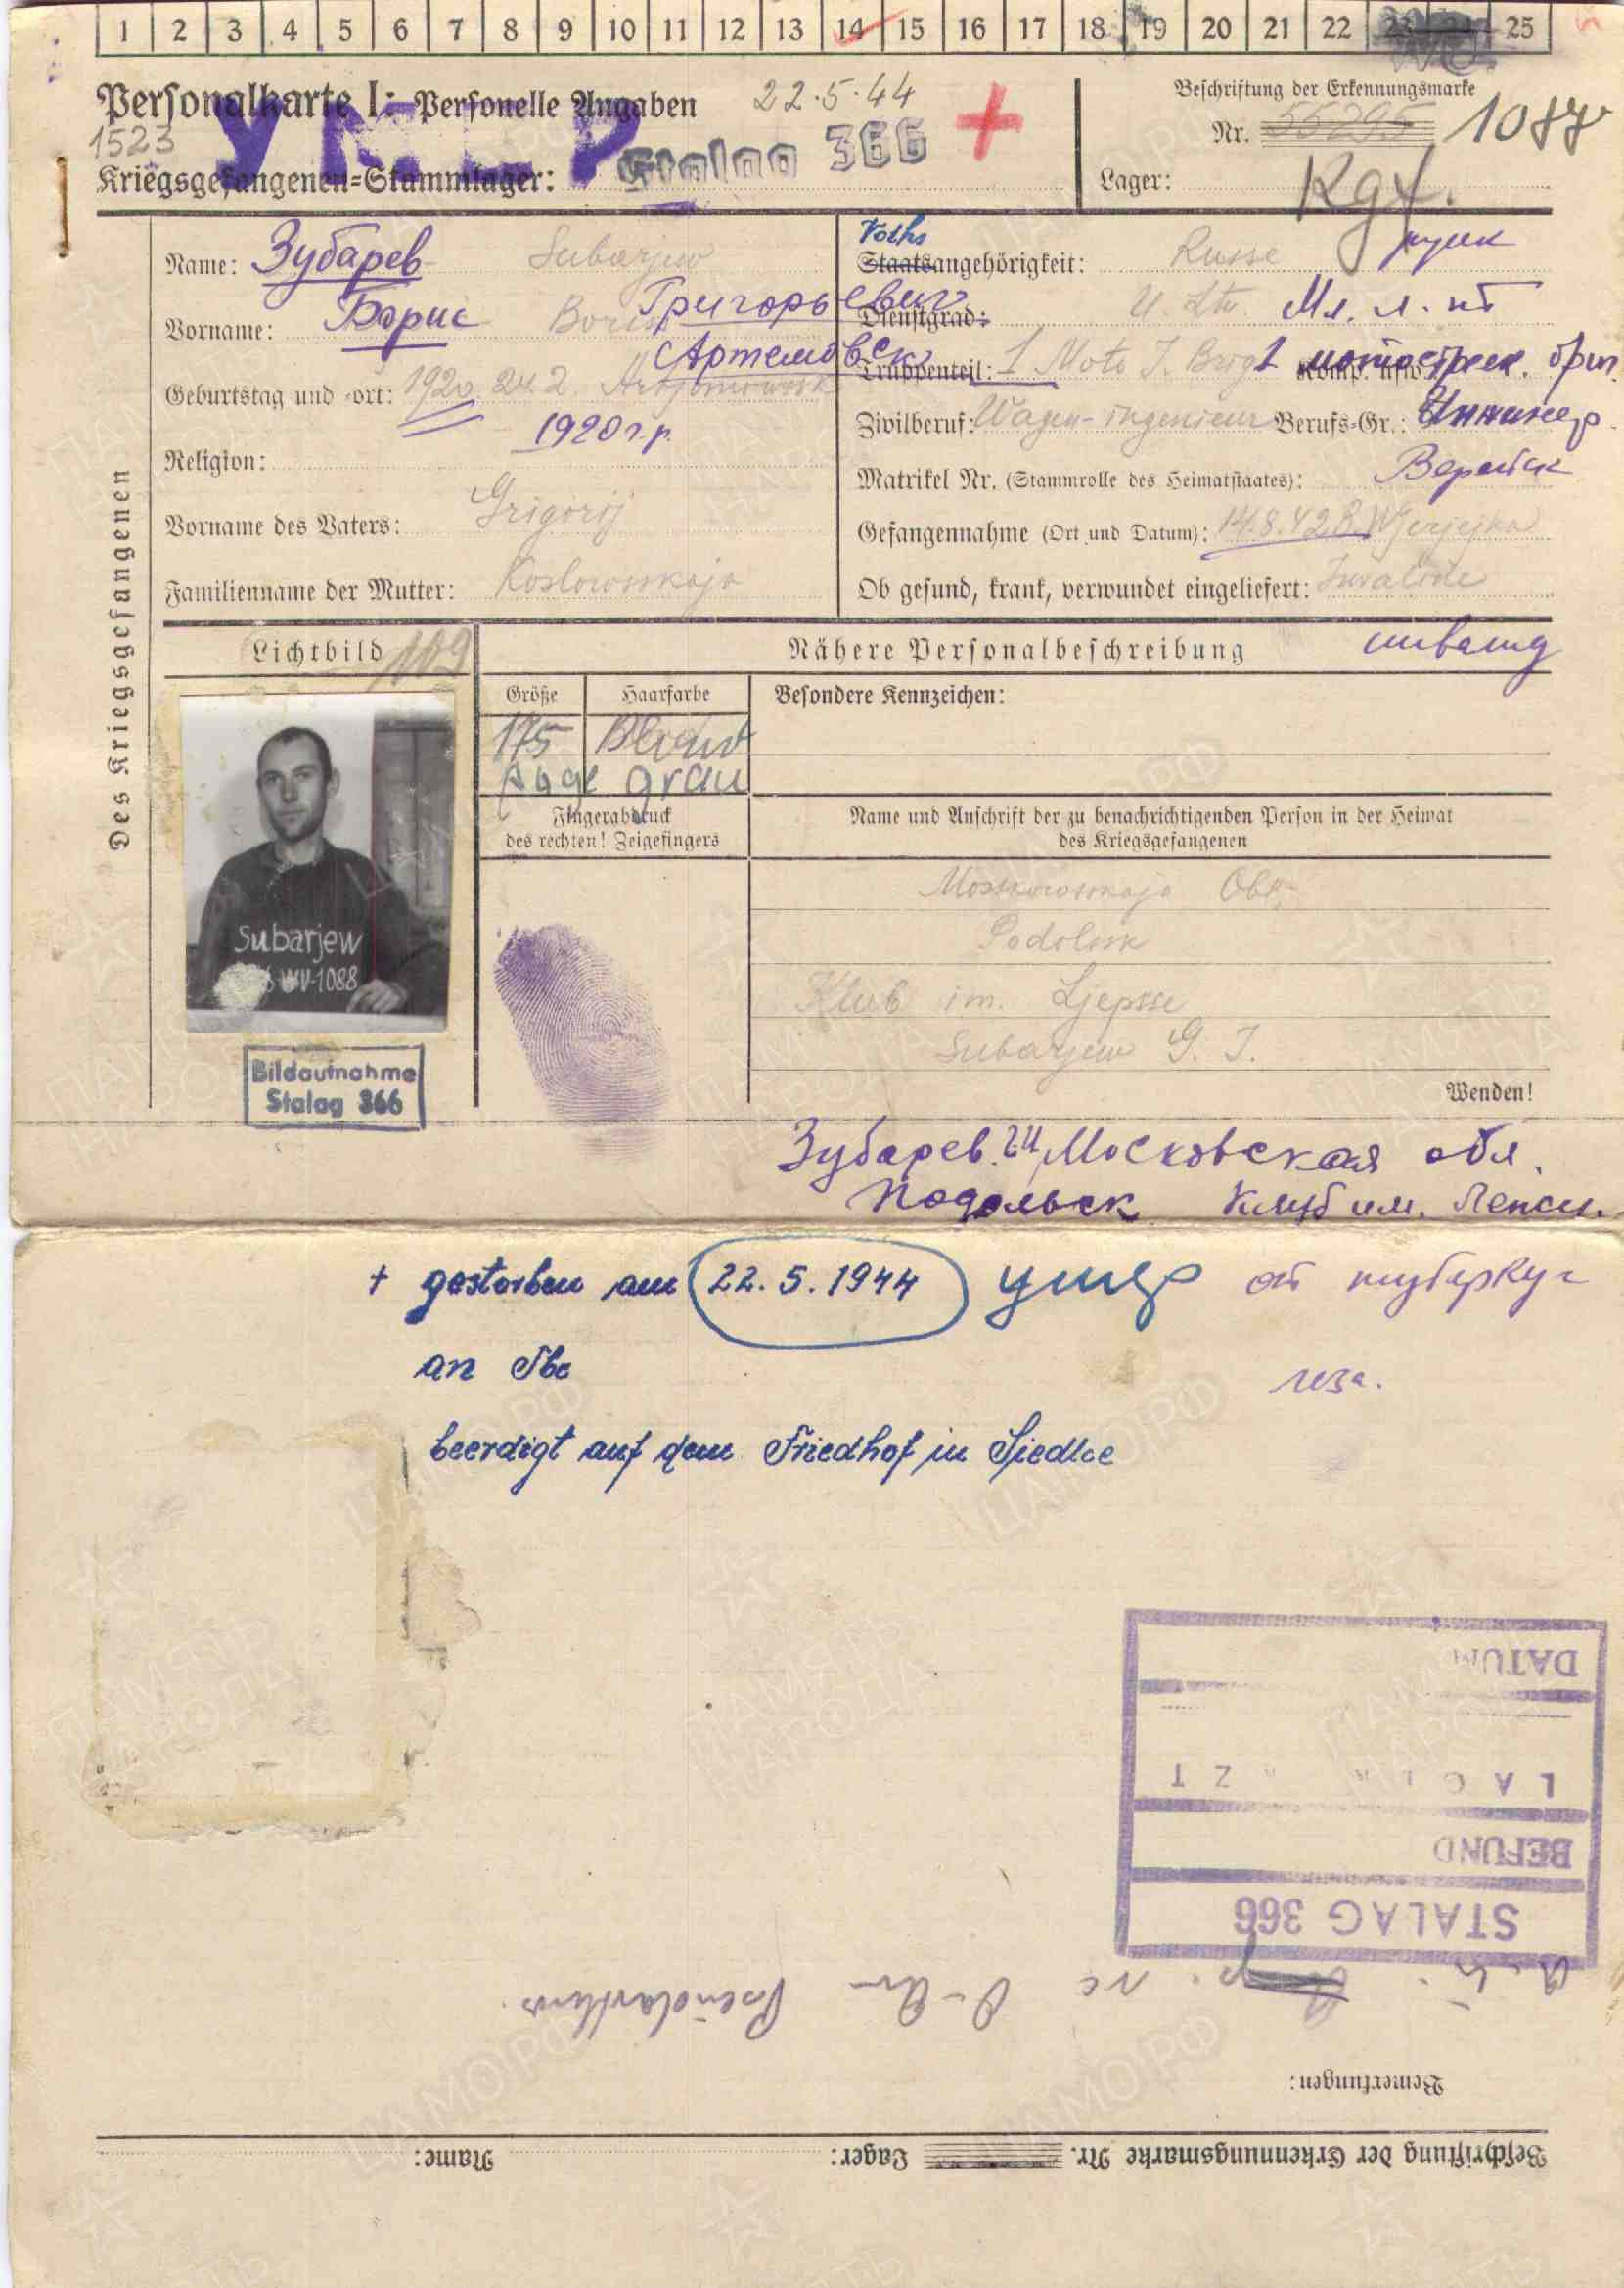 1 2 3 4 5 6 7 8 9 10 11 12 13 14 15 16 17 18 19 20 21 22 23 24 25
Personalkarte I: Personelle Angaben 22.5.44
1523
Kriegsgefangenen-Stammlager: Stalag 366
Beschriftung der Erkennungsmarke
Nr. 55295
Lager: Kgf.
Des Kriegsgefangenen
Name: Зубарев Subarjew
Vorname: Борис Boris Григорьевич
Артемовск
Geburtstag und -ort: 1920. 24.2. Artjomowsk
1920 г.р.
Religion:
Vorname des Vaters: Grigorij
Familienname der Mutter: Koslowskaja
Volks
Staatsangehörigkeit: Russe русск
Dienstgrad: U. Ltn Мл. л-нт
Truppenteil: 1 Moto I. Brig 1 мотострел. бриг.
Komp. usw.
Zivilberuf: Wagen-ingenieur Berufs-Gr.: Инженер
Matrikel Nr. (Stammrolle des Heimatstaates):
Gefangennahme (Ort und Datum): 14.8.42
Ob gesund, krank, verwundet eingeliefert: Invalide
инвалид
Lichtbild 109
Nähere Personalbeschreibung
Größe Haarfarbe Besondere Kennzeichen:
175 Blond
Auge grau
Fingerabdruck
des rechten! Zeigefingers
Name und Anschrift der zu benachrichtigenden Person in der Heimat
des Kriegsgefangenen
Moskowskaja Obl.
Podolsk
Klub im. Ljepsse
Subarjew G. I.
Wenden!
Subarjew
WV-1088
Bildaufnahme
Stalag 366
Зубарев Г.И. Московская обл.
Подольск Клуб им. Лепсе.
+ gestorben am 22.5.1944 умер от туберкуле
an Tbc
леза.
beerdigt auf dem Friedhof in Siedlce
DATUM
LAGERARZT
BEFUND
STALAG 366
Bemerkungen:
Beschriftung der Erkennungsmarke Nr. Lager: Name: